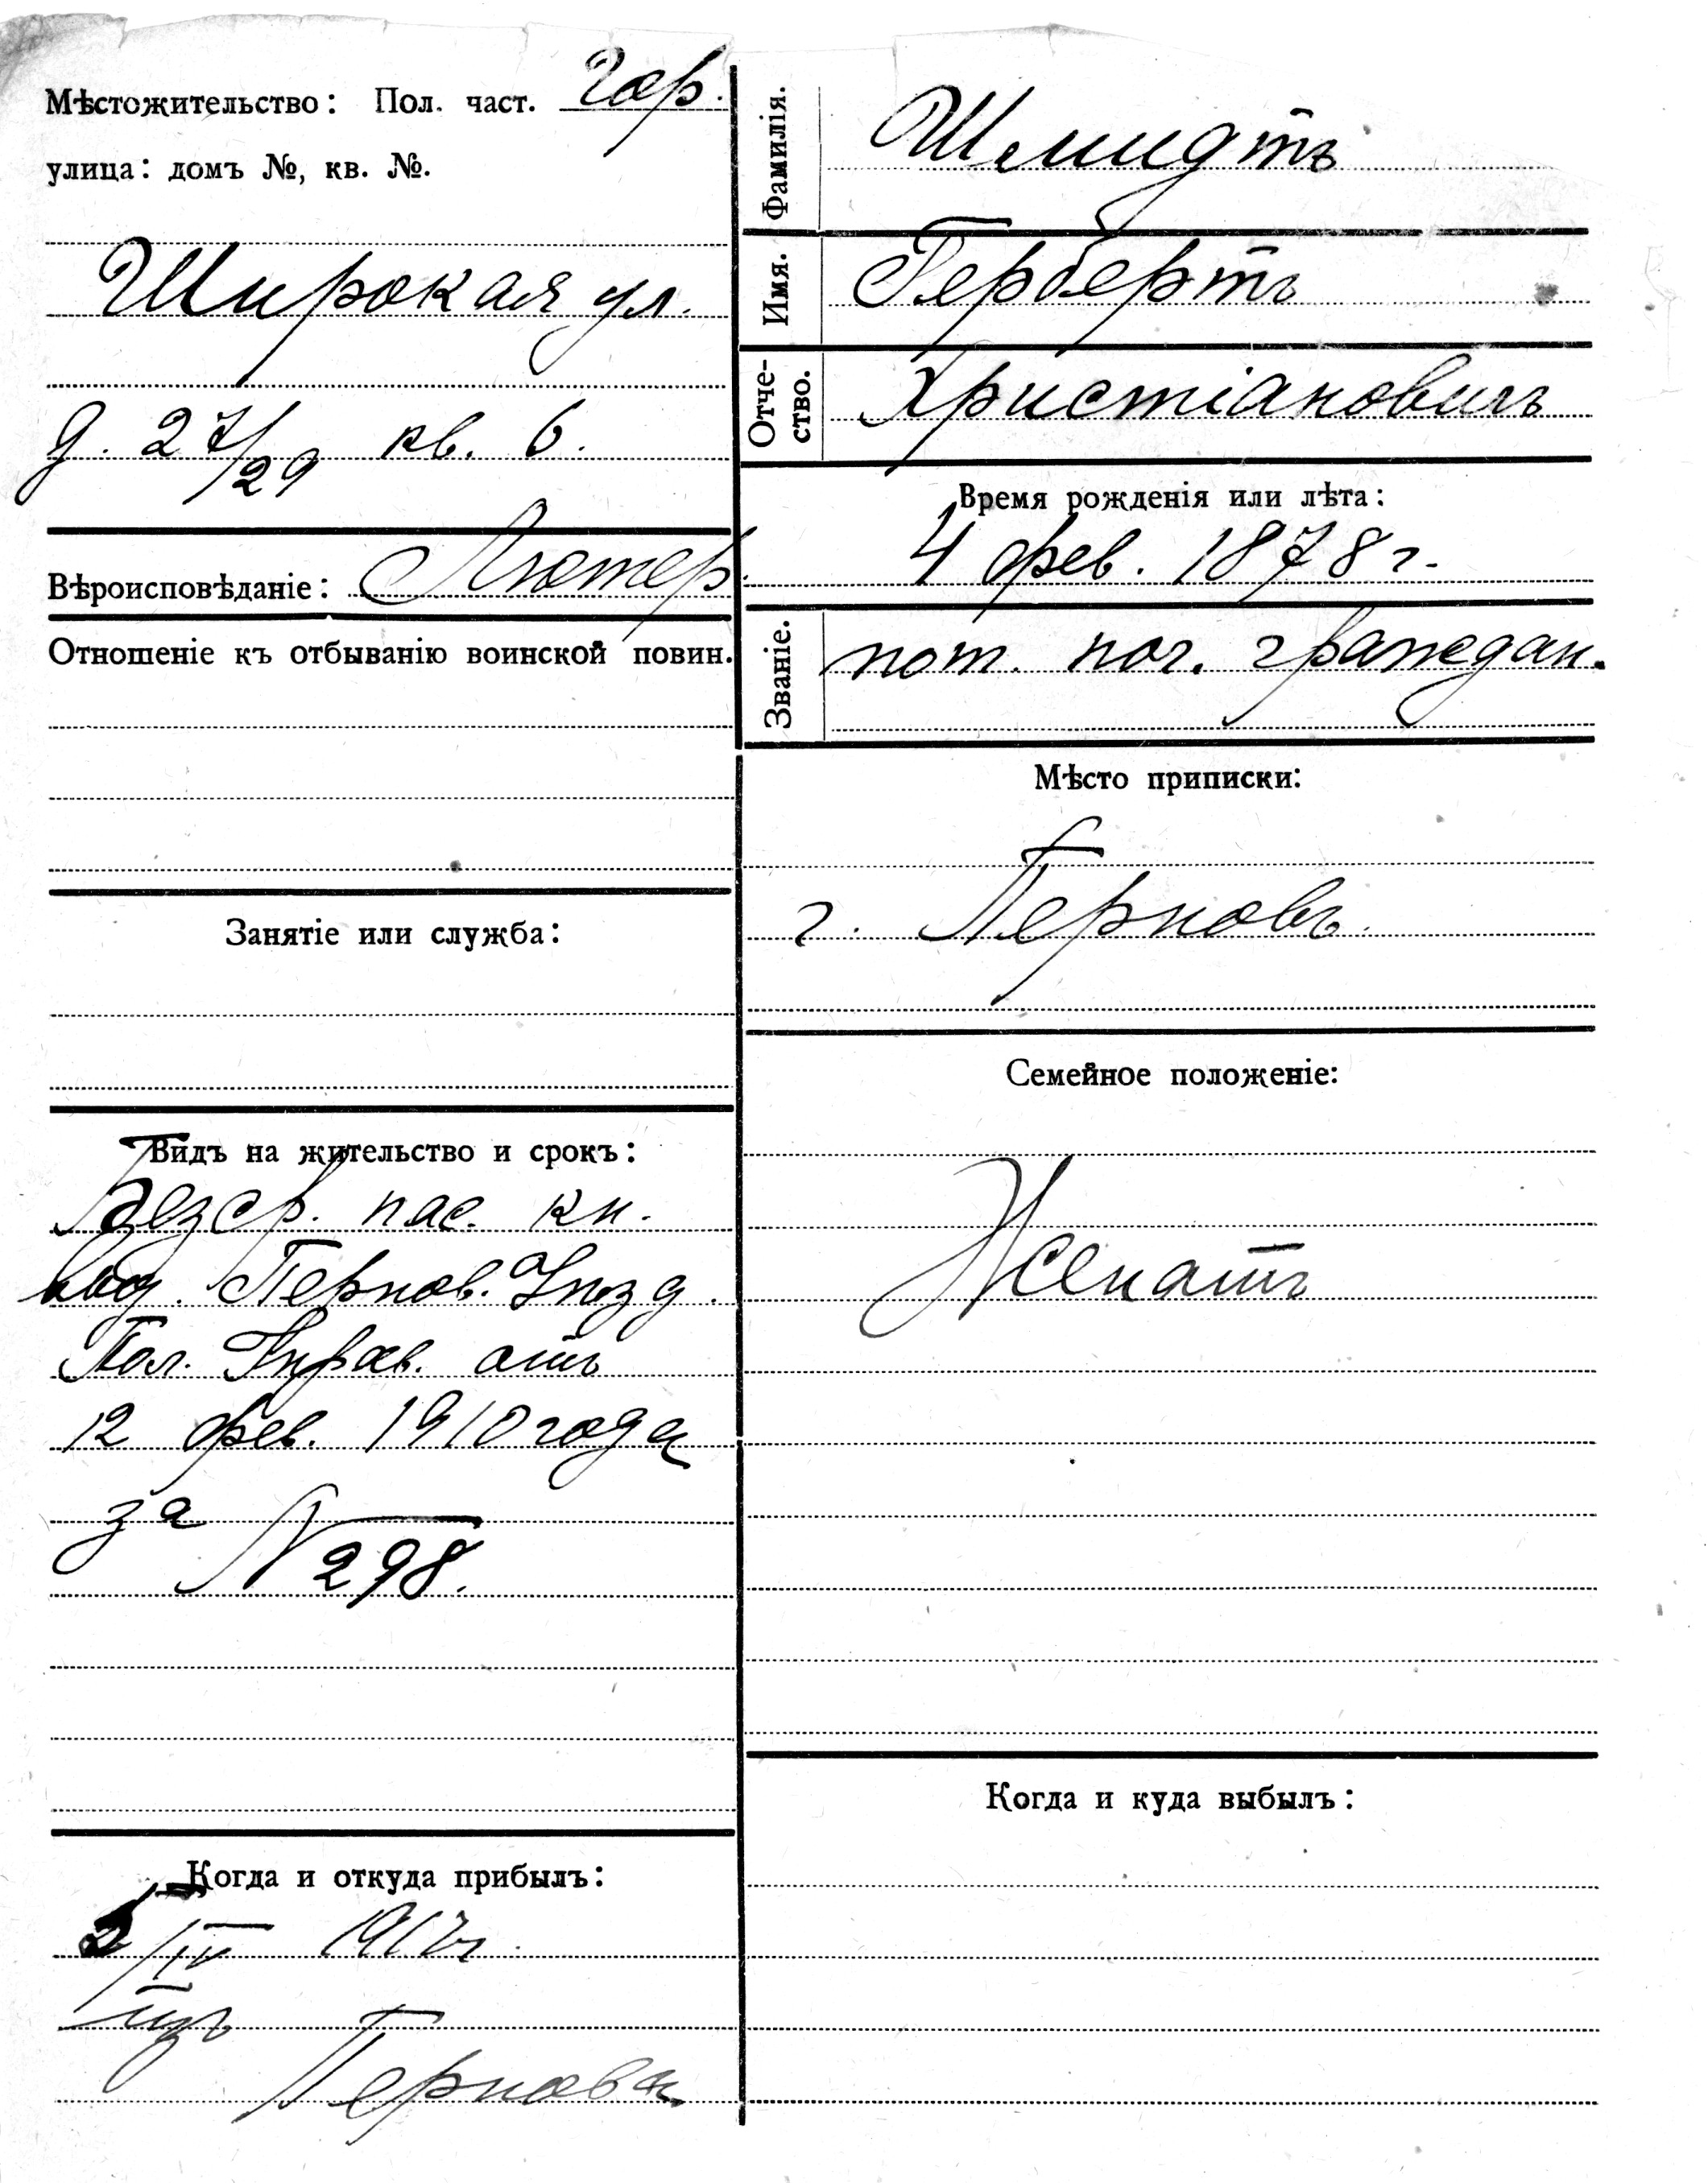 Мѣстожительство: Пол. част. Гор.
улица: домъ №, кв. №.
Широкая ул.
д. 27/29 кв. 6.
Вѣроисповѣданіе: Лютер.
Отношеніе къ отбыванію воинской повин.
Занятіе или служба:
Видъ на жительство и срокъ:
Безср. пас. кн.
выд. Пернов. Уѣзд.
Пол. Управ. отъ
12 фев. 1910 года
за
№ 298.
Когда и откуда прибылъ:
2/IV 1912 г.
изъ
Пернова
Фамилія. Шмидтъ
Имя. Гербертъ
Отче-
ство. Христіановичъ
Время рожденія или лѣта:
4 фев. 1878 г.
Званіе. пот. поч. граждан.
Мѣсто приписки:
г. Перновъ.
Семейное положеніе:
Женатъ
Когда и куда выбылъ: